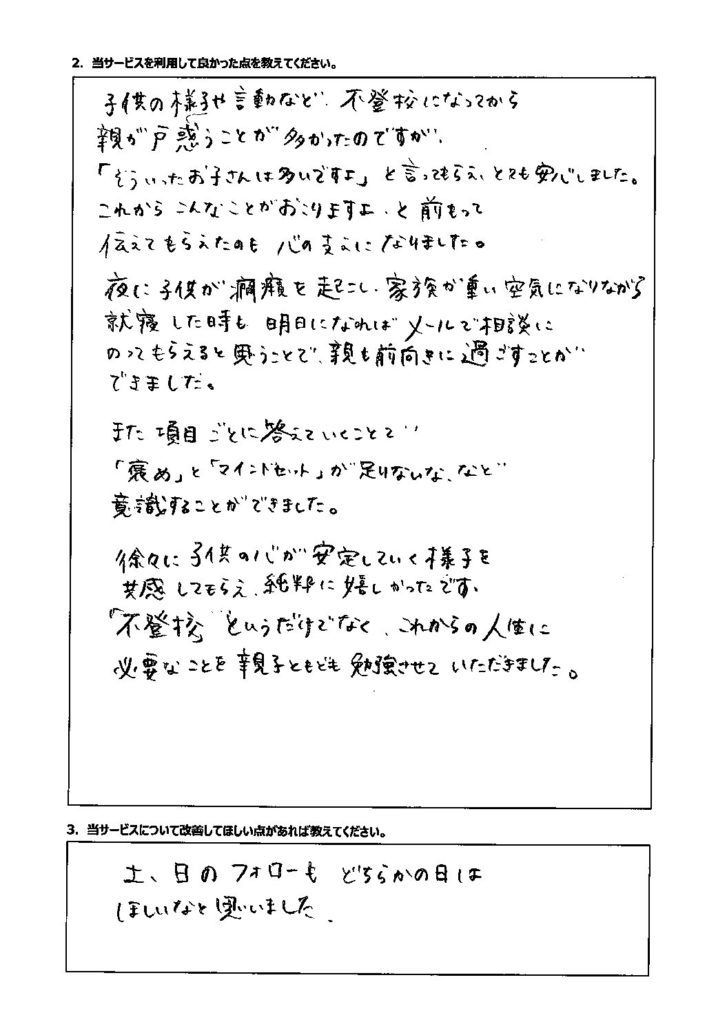 2. 当サービスを利用して良かった点を教えてください。
子供の様子や言動など、不登校になってから
親が戸惑うことが多かったのですが、
「そういったお子さんは多いですよ」と言ってもらえ、とても安心しました。
これからこんなことがおこりますよ、と前もって
伝えてもらえたのも心の支えになりました。
夜に子供が癇癪を起こし、家族が重い空気になりながら
就寝した時も明日になればメールで相談に
のってもらえると思うことで、親も前向きに過ごすことが
できました。
また項目ごとに答えていくことで
「褒め」と「マインドセット」が足りないな、など
意識することができました。
徐々に子供の心が安定していく様子を
共感してもらえ、純粋に嬉しかったです。
「不登校」というだけでなく、これからの人生に
必要なことを親子ともども勉強させていただきました。
3. 当サービスについて改善してほしい点があれば教えてください。
土、日のフォローもどちらかの日は
ほしいなと思いました。